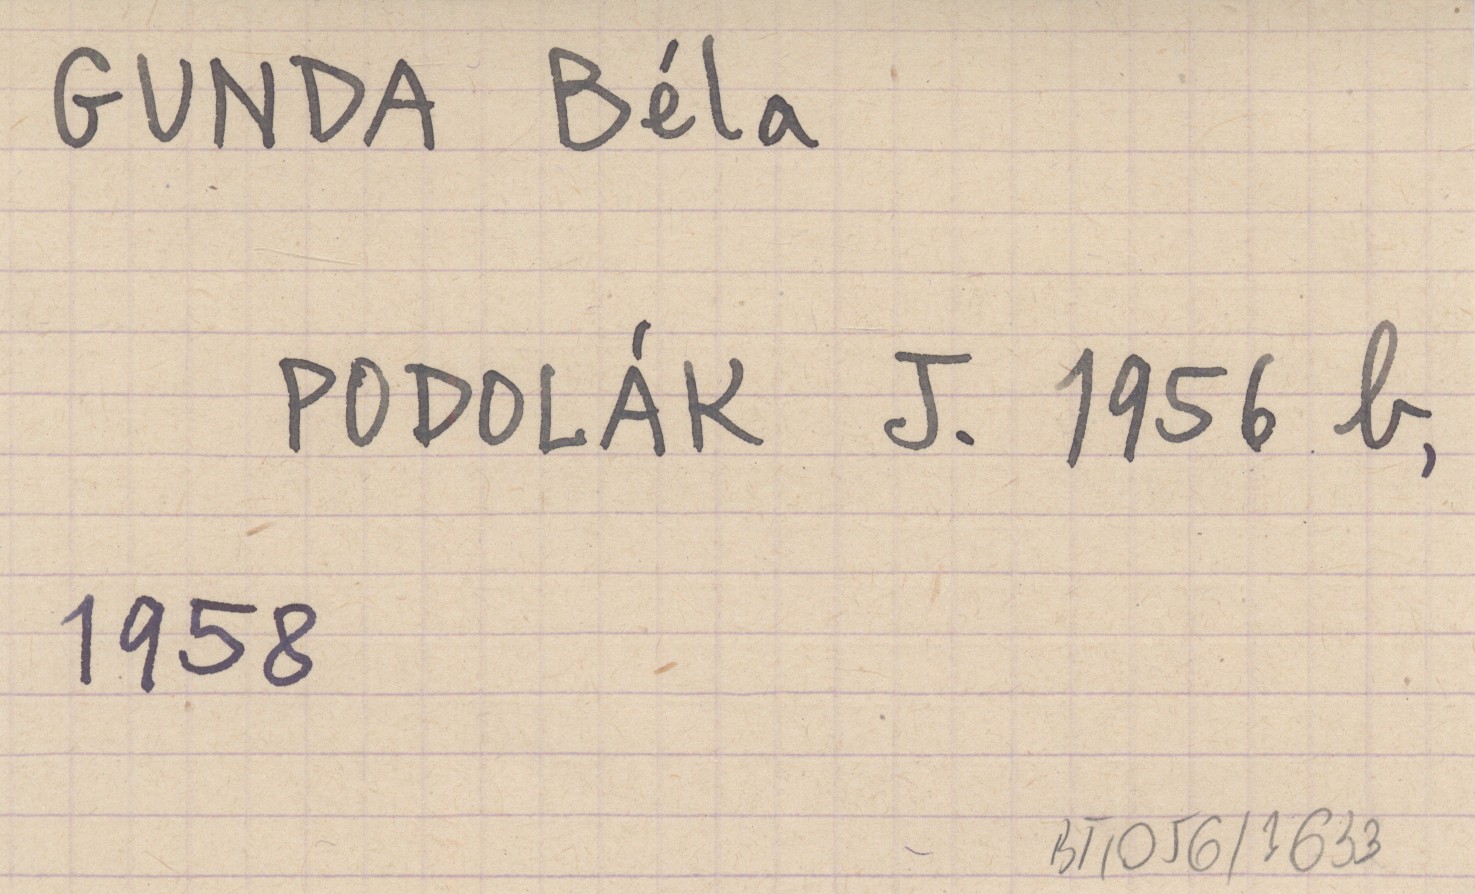 GUNDA Béla
PODOLÁK J. 1956 b,
1958
BT,056/1633